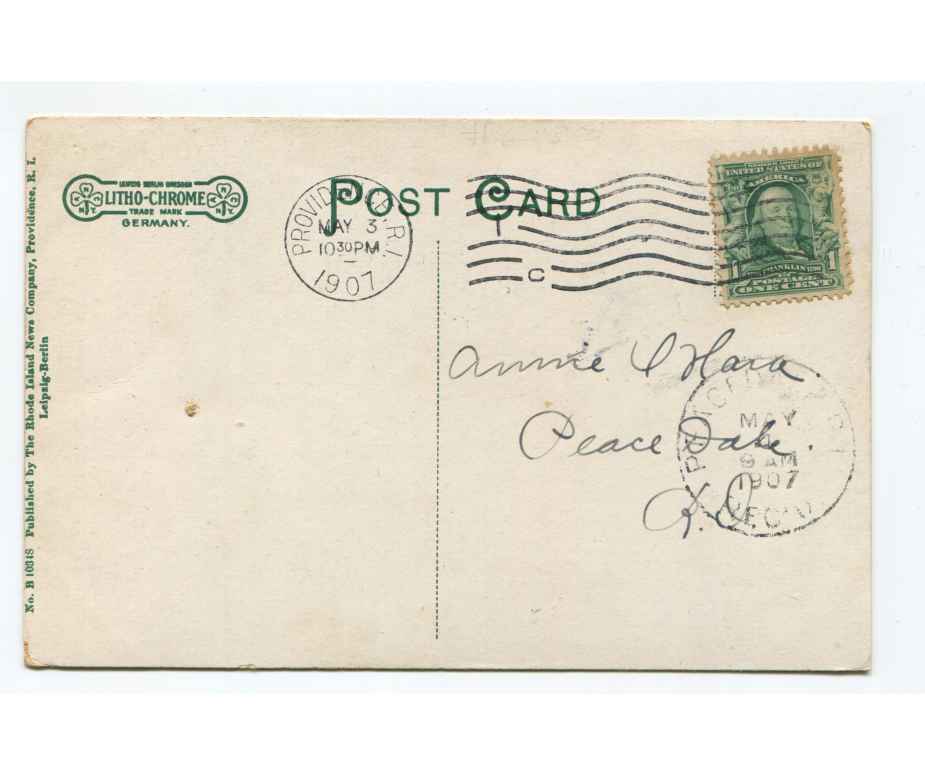 No. B 10348 Published by The Rhode Island News Company, Providence, R. I.
Leipzig-Berlin
LEIPZIG BERLIN DRESDEN
LITHO-CHROME
TRADE MARK
GERMANY.
N N
N.Y.
POST CARD
MAY 3
10 30 PM
1907
R.I.
C
UNITED STATES OF
AMERICA
FRANKLIN
POSTAGE
1 1
ONE CENT
Annie O'Hara.
Peace Dale.
R.I.
MAY
9 AM
1907
REC'D